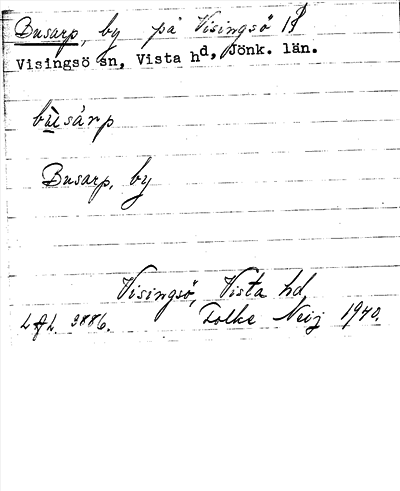 Busarp, by på Visingsö
Visingsö sn, Vista hd, Jönk. län.
bùsárp
Busarp, by
Visingsö, Vista hd
Folke Neij 1940.